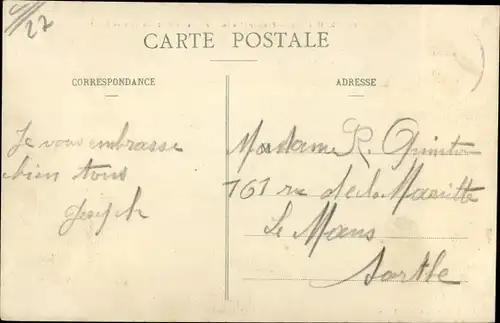 22
CARTE POSTALE
CORRESPONDANCE
ADRESSE
Je vous embrasse
bien tous
Joseph
Madame R. Quinton
161 rue de la Mariette
Le Mans
Sarthe